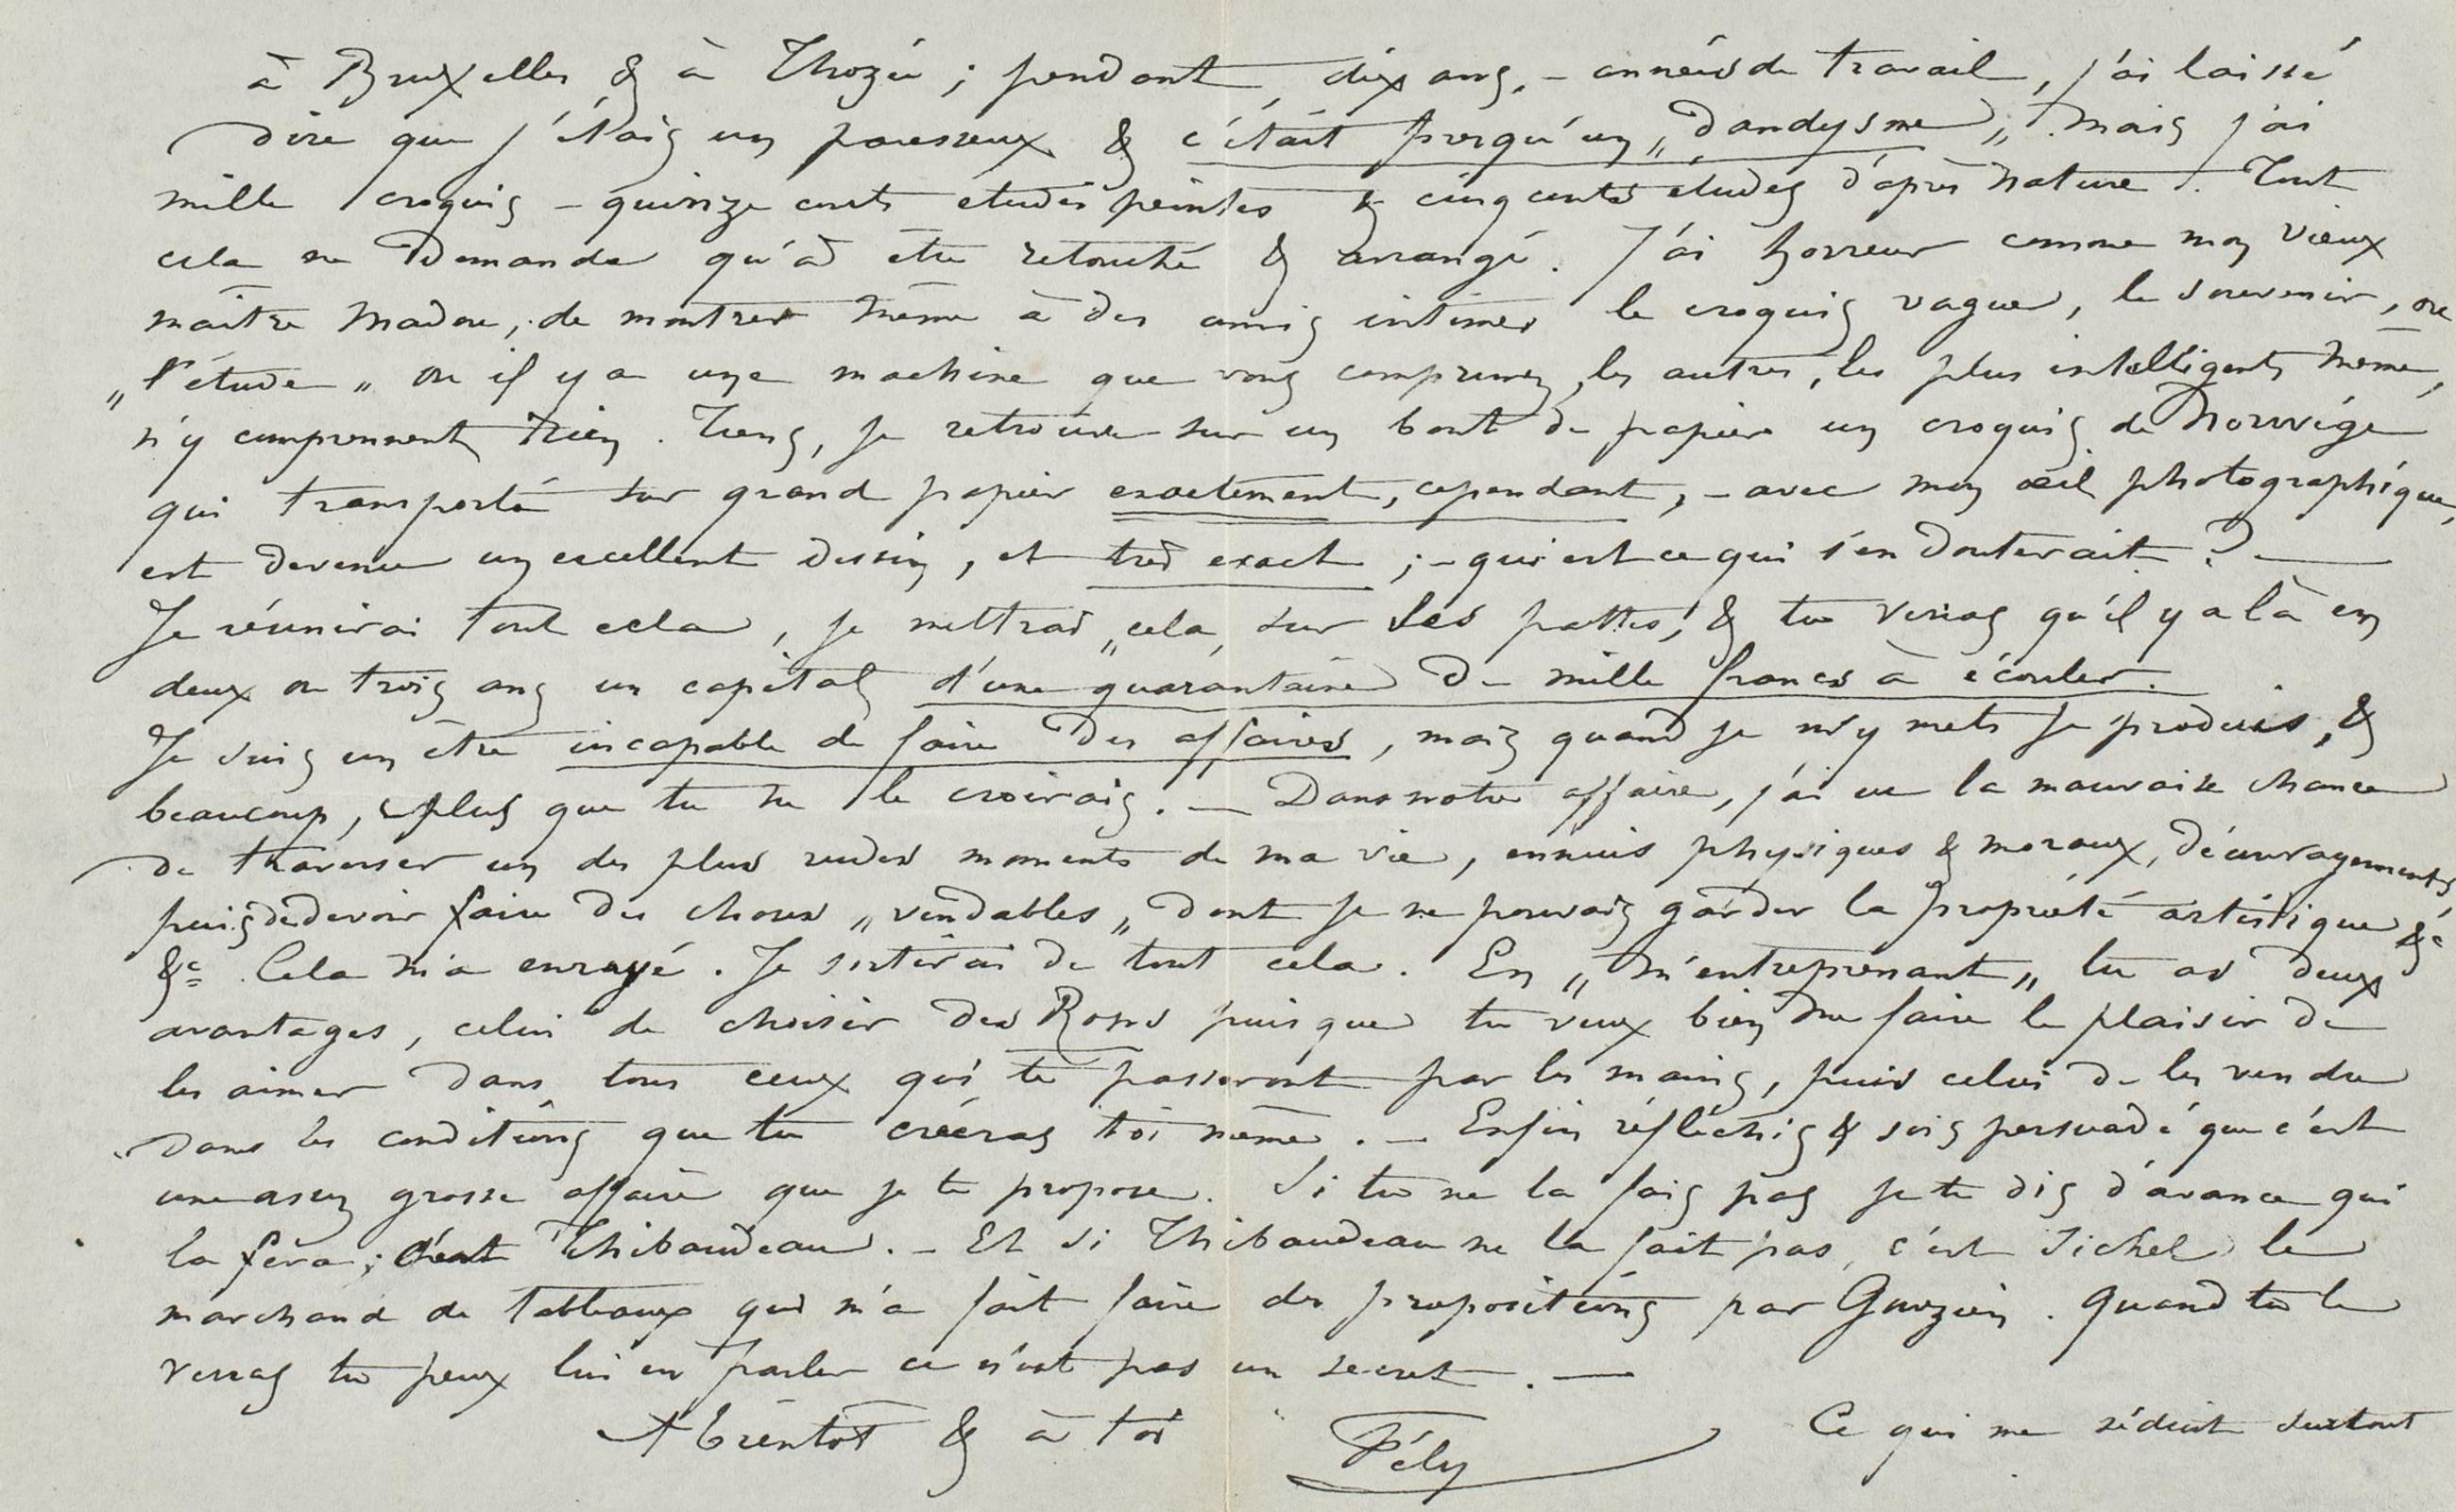 à Bruxelles & à Thozée ; pendant dix ans, – années de travail, j'ai laissé
dire que j'étais un paresseux & c'était presqu'un „dandysme„. Mais j'ai
mille croquis – quinze cents etudes peintes & cinq cents études d'après nature. Tout
cela ne demande qu'à être retouché & arrangé. J'ai horreur comme mon vieux
maître Madou, de montrer même à des amis intimes le croquis vague, le souvenir, ou
„l'étude„ ou il y a une machine que vous comprenez, les autres, les plus intelligents même,
n'y comprennent rien. Tiens, je retrouve sur un bout de papier un croquis de Norwége
qui transporté sur grand papier exactement, cependant, – avec mon œil photographique,
est devenu un excellent dessin, et très exact ; – qui est ce qui s'en douterait ? —
Je réunirai tout cela, je mettrai „cela„ sur ses pattes, & tu verras qu'il y a là en
deux ou trois ans un capital d'une quarantaine de mille francs à écouler.
Je suis un être incapable de faire des affaires, mais quand je m'y mets je produis, &
beaucoup, plus que tu ne le croirais. — Dans notre affaire, j'ai eu la mauvaise chance
de traverser un des plus rudes moments de ma vie, ennuis physiques & moraux, découragements,
puis de devoir faire des choses „vendables„ dont je ne pouvais garder la propriété artistique &c
&c. Cela m'a enrayé. Je sortirai de tout cela. En „m'entreprenant„ tu as deux
avantages, celui de choisir des Rops puisque tu veux bien me faire le plaisir de
les aimer dans tous ceux qui te passeront par les mains, puis celui de les vendre
dans les conditions que tu créeras toi même. – Enfin réfléchis & sois persuadé que c'est
une assez grosse affaire que je te propose. Si tu ne la fais pas je te dis d'avance qui
la fera ; c'est Thibaudeau. – Et si Thibaudeau ne la fait pas, c'est Sichel le
marchand de tableaux qui m'a fait faire des propositions par Gouzien. Quand tu le
verras tu peux lui en parler ce n'est pas un secret. —
A bientôt & à toi
Fély
Ce qui me séduit surtout